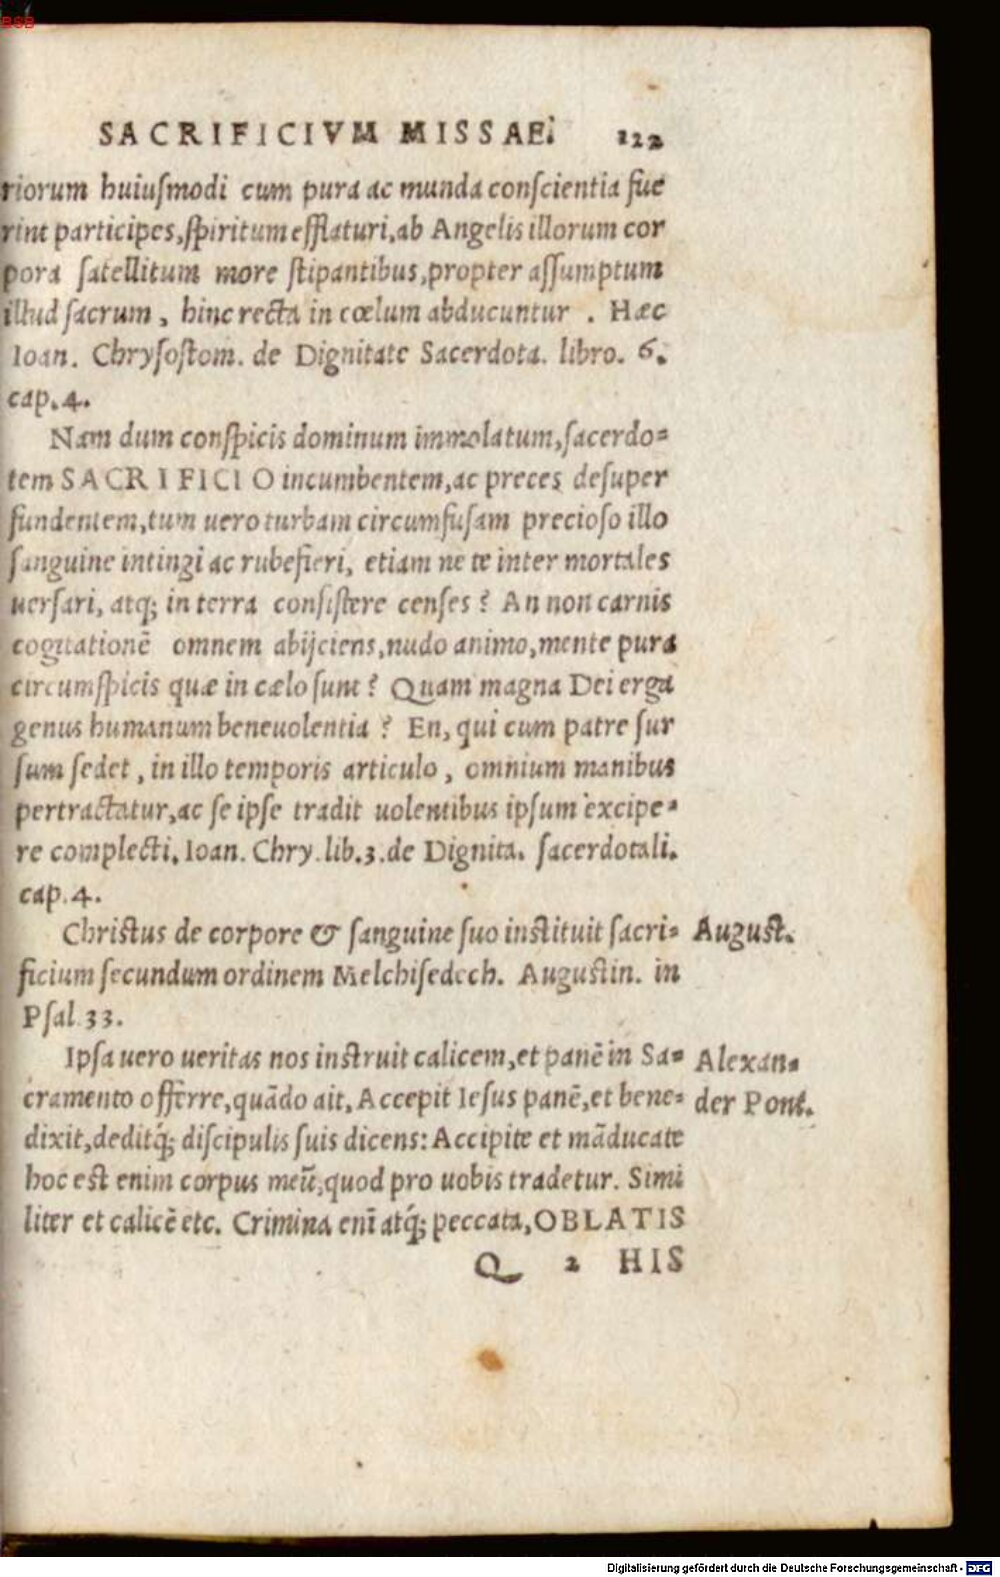 BSB
SACRIFICIVM MISSAE. 122
riorum huiusmodi cum pura ac munda conscientia fue
rint participes, spiritum efflaturi, ab Angelis illorum cor
pora satellitum more stipantibus, propter assumptum
illud sacrum, hinc recta in cœlum abducuntur . Hæc
Ioan. Chrysostom. de Dignitate Sacerdota. libro. 6.
cap. 4.
Nam dum conspicis dominum immolatum, sacerdo-
tem SACRIFICIO incumbentem, ac preces desuper
fundentem, tum uero turbam circumfusam precioso illo
sanguine intingi ac rubefieri, etiam ne te inter mortales
uersari, atq; in terra consistere censes? An non carnis
cogitationē omnem abijciens, nudo animo, mente pura
circumspicis quæ in cælo sunt? Quam magna Dei erga
genus humanum beneuolentia? En, qui cum patre sur
sum sedet, in illo temporis articulo, omnium manibus
pertractatur, ac se ipse tradit uolentibus ipsum excipe-
re complecti. Ioan. Chry. lib. 3. de Dignita. sacerdotali.
cap. 4.
Christus de corpore & sanguine suo instituit sacri-
August.
ficium secundum ordinem Melchisedech. Augustin. in
Psal 33.
Ipsa uero ueritas nos instruit calicem, et panē in Sa-
Alexan-
cramento offerre, quādo ait, Accepit Iesus panē, et bene-
der Pont.
dixit, deditq́; discipulis suis dicens: Accipite et māducate
hoc est enim corpus meū, quod pro uobis tradetur. Simi
liter et calicē etc. Crimina enī atq́; peccata, OBLATIS
Q 2 HIS
Digitalisierung gefördert durch die Deutsche Forschungsgemeinschaft - DFG